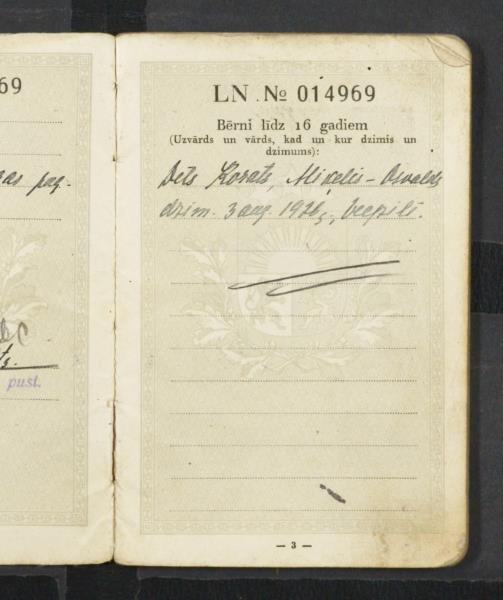 69
pag.
pust.
LN № 014969
Bērni līdz 16 gadiem
(Uzvārds un vārds, kad un kur dzimis un
dzimums):
Dēls Korats, Miķelis-Osvalds
dzim. 3 aug. 1926 g., Veepilī.
— 3 —